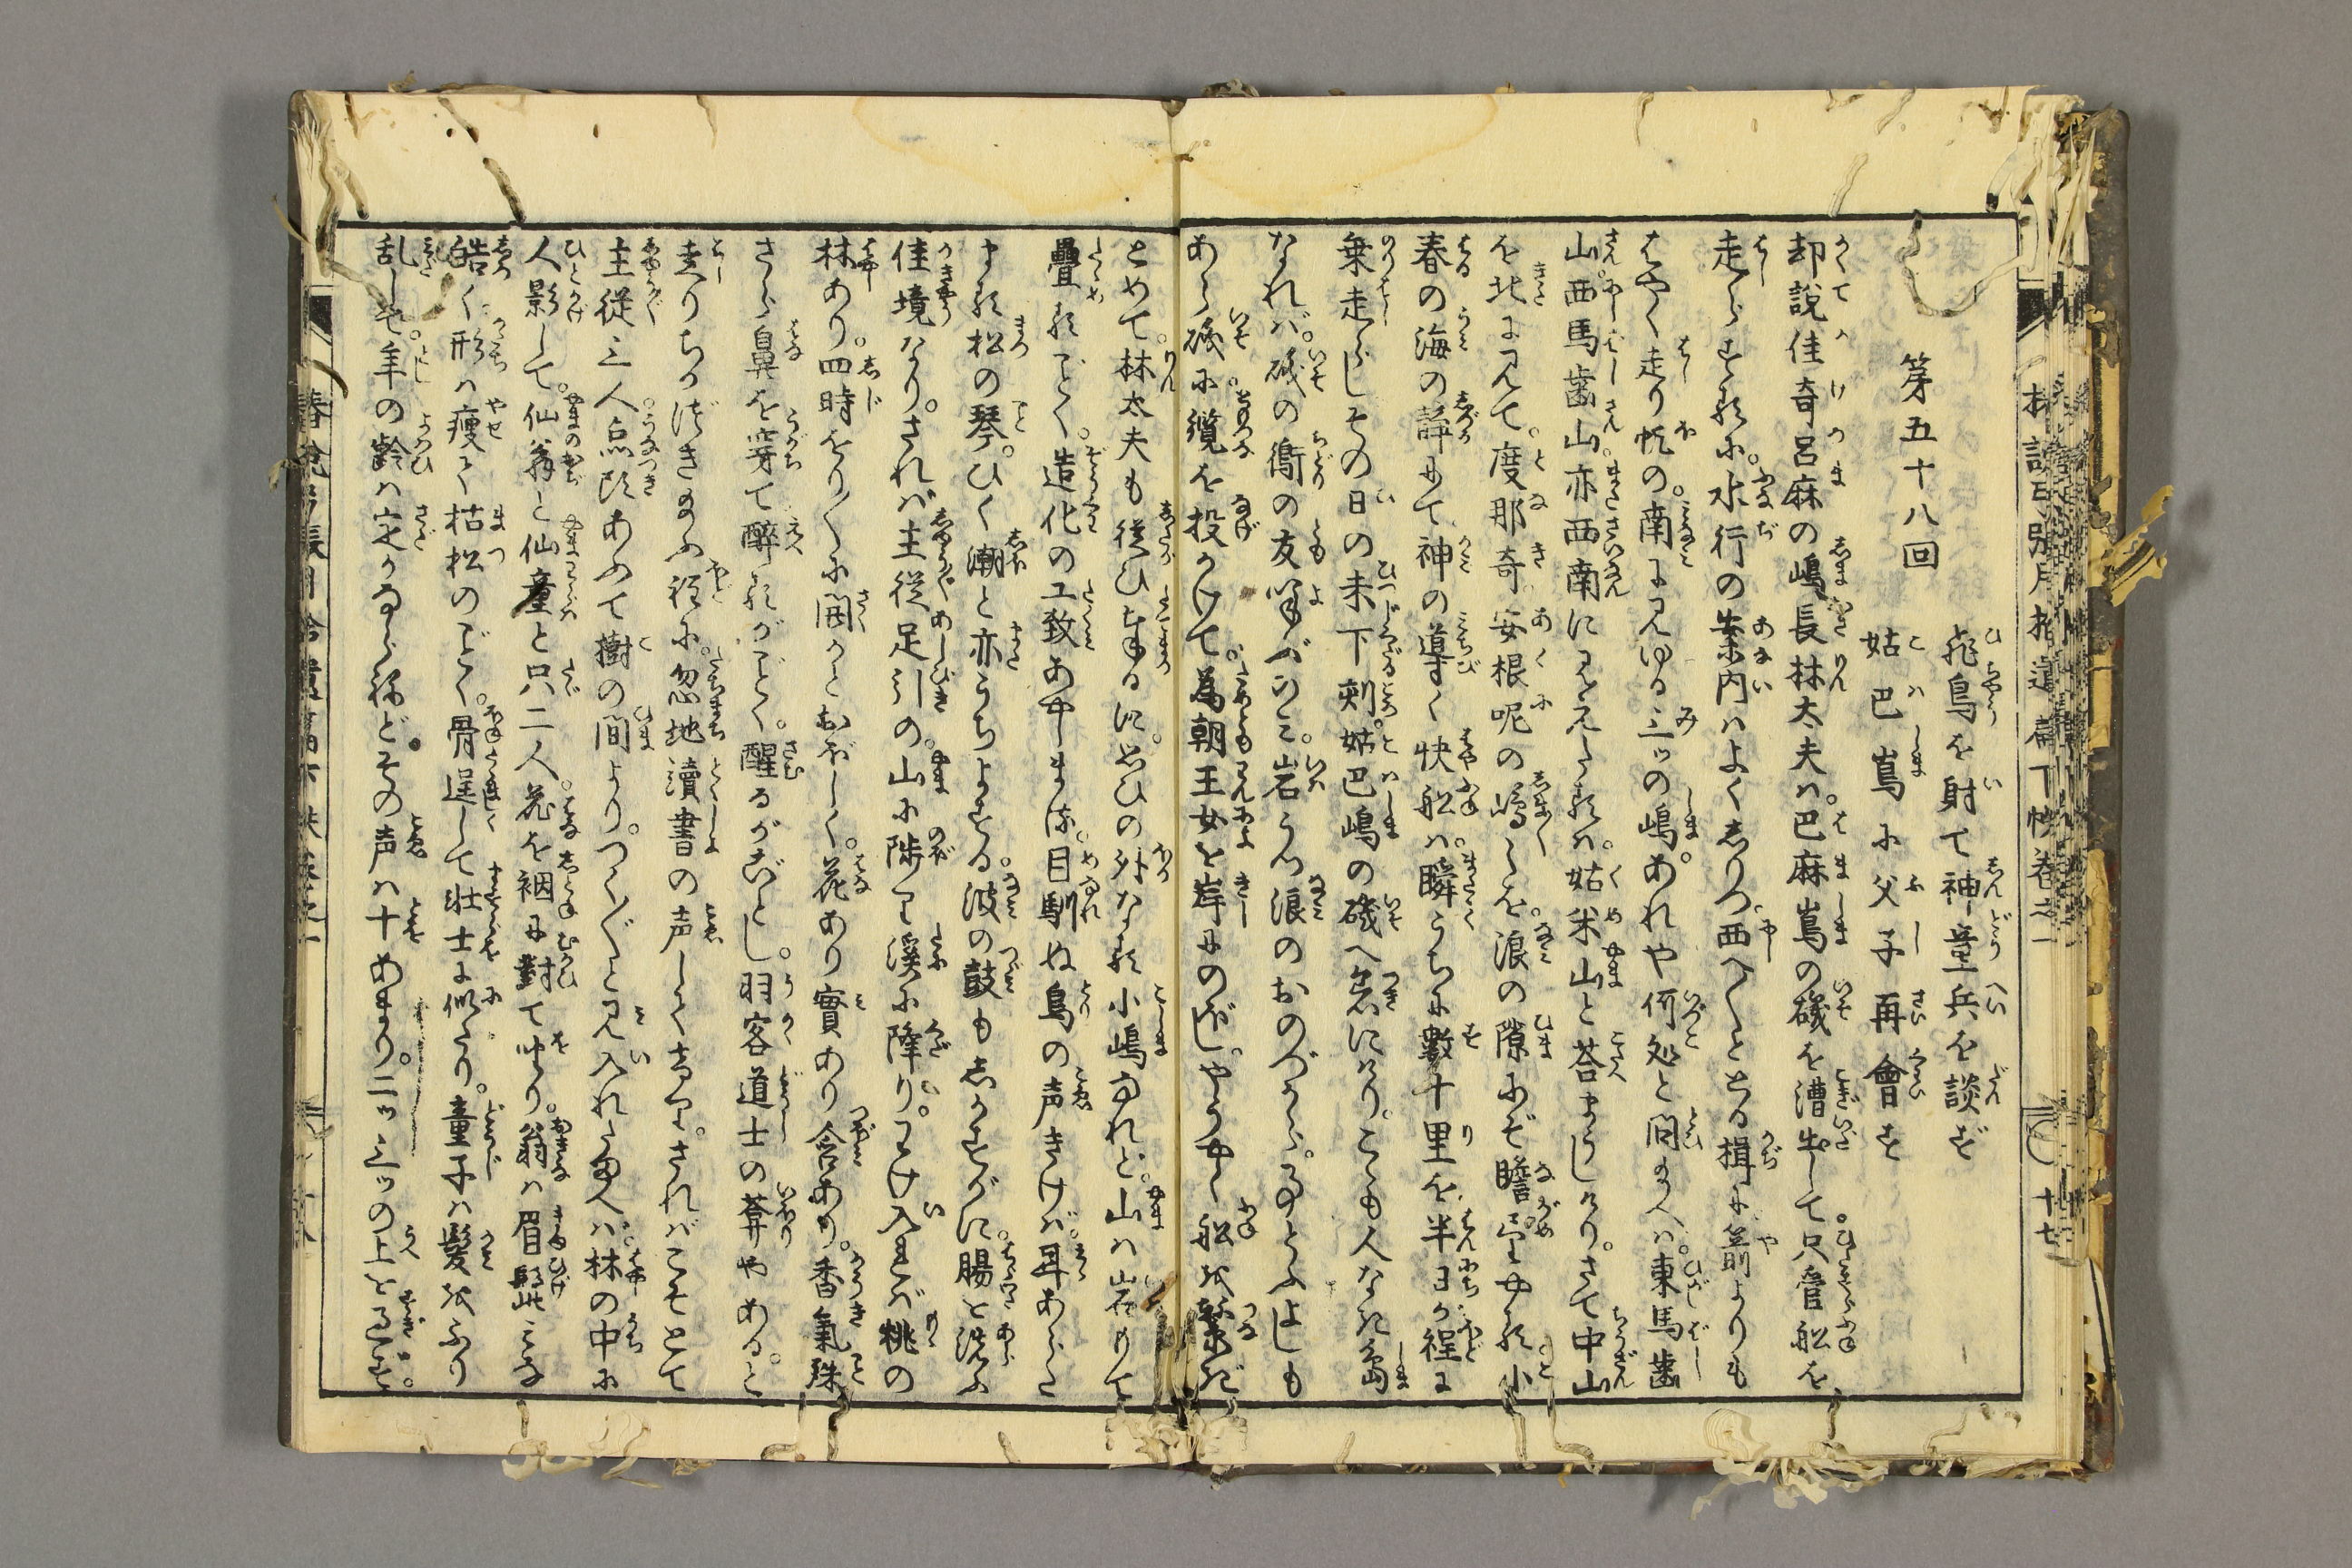 第五十八回
飛鳥を射て神童兵を談ず
姑巴嶌に父子再會す
却說佳奇呂麻の嶋長林太夫ハ。巴麻嶌の磯を漕出して。只管舩を
走らする に。水行の案内ハよくしりつ。西へ〳〵ととる揖に箭よりも
はやく走り帆の。南に見ゆる三ッの嶋。あれや何処と問 へバ。東馬歯
山。西馬歯山。亦西南に見えたるハ。姑米山と荅 まうしけり。さて中山
を北に見て。度那奇安根呢の嶋〳〵を。浪の隙にぞ瞻 やる 小
春の海の静にて神の導く快舩ハ。瞬うちに數十里を半日が程に
乗走らしその日の未下剋。姑巴嶋の磯へ着にけり。こゝも人なき島
なれバ。磯の鵆の友呼ぶのミ。岩うつ浪のおのづから。 とふよしも
あら磯に。纜を投かけて。為朝王女を岸にのぼし。やをら舩を繋ぎ
とめて。林太夫も従ひまゐるに。思ひの外なる小嶋なれど。山ハ岩もて
疊るごとく。造化の工致あやしまる。目馴ぬ鳥の声きけバ。耳あらた
なる松の琴。ひく潮と亦うちよする。波の鼓もしかすがに。腸を洗ふ
佳境なり。されバ主従足引の。山に陟り溪に降り。わけ入れバ桃の
林あり。四時をり〳〵に開くとおぼしく。花あり實あり含あり。香氣殊
さら鼻を穿て醉るがごとく。醒るがごとし。羽客道士の菴やあると
走りちかづき給ふ程に。忽地讀書の声しく聞ゆ。さればこそとて
主従三人点頭あふて樹の間より。つく〴〵と見入れ給へバ。林の中に
人影して。仙翁と仙童と只二人。花を裀に對て をり。翁ハ眉髭みな
皓く形ハ痩て枯松のごとく。骨逞しくて壮士に似たり。童子ハ髪をふり
乱して。年の齢ハ定かならねど。その声ハ十あまり。二ッ三ッの上を過ず。
十七